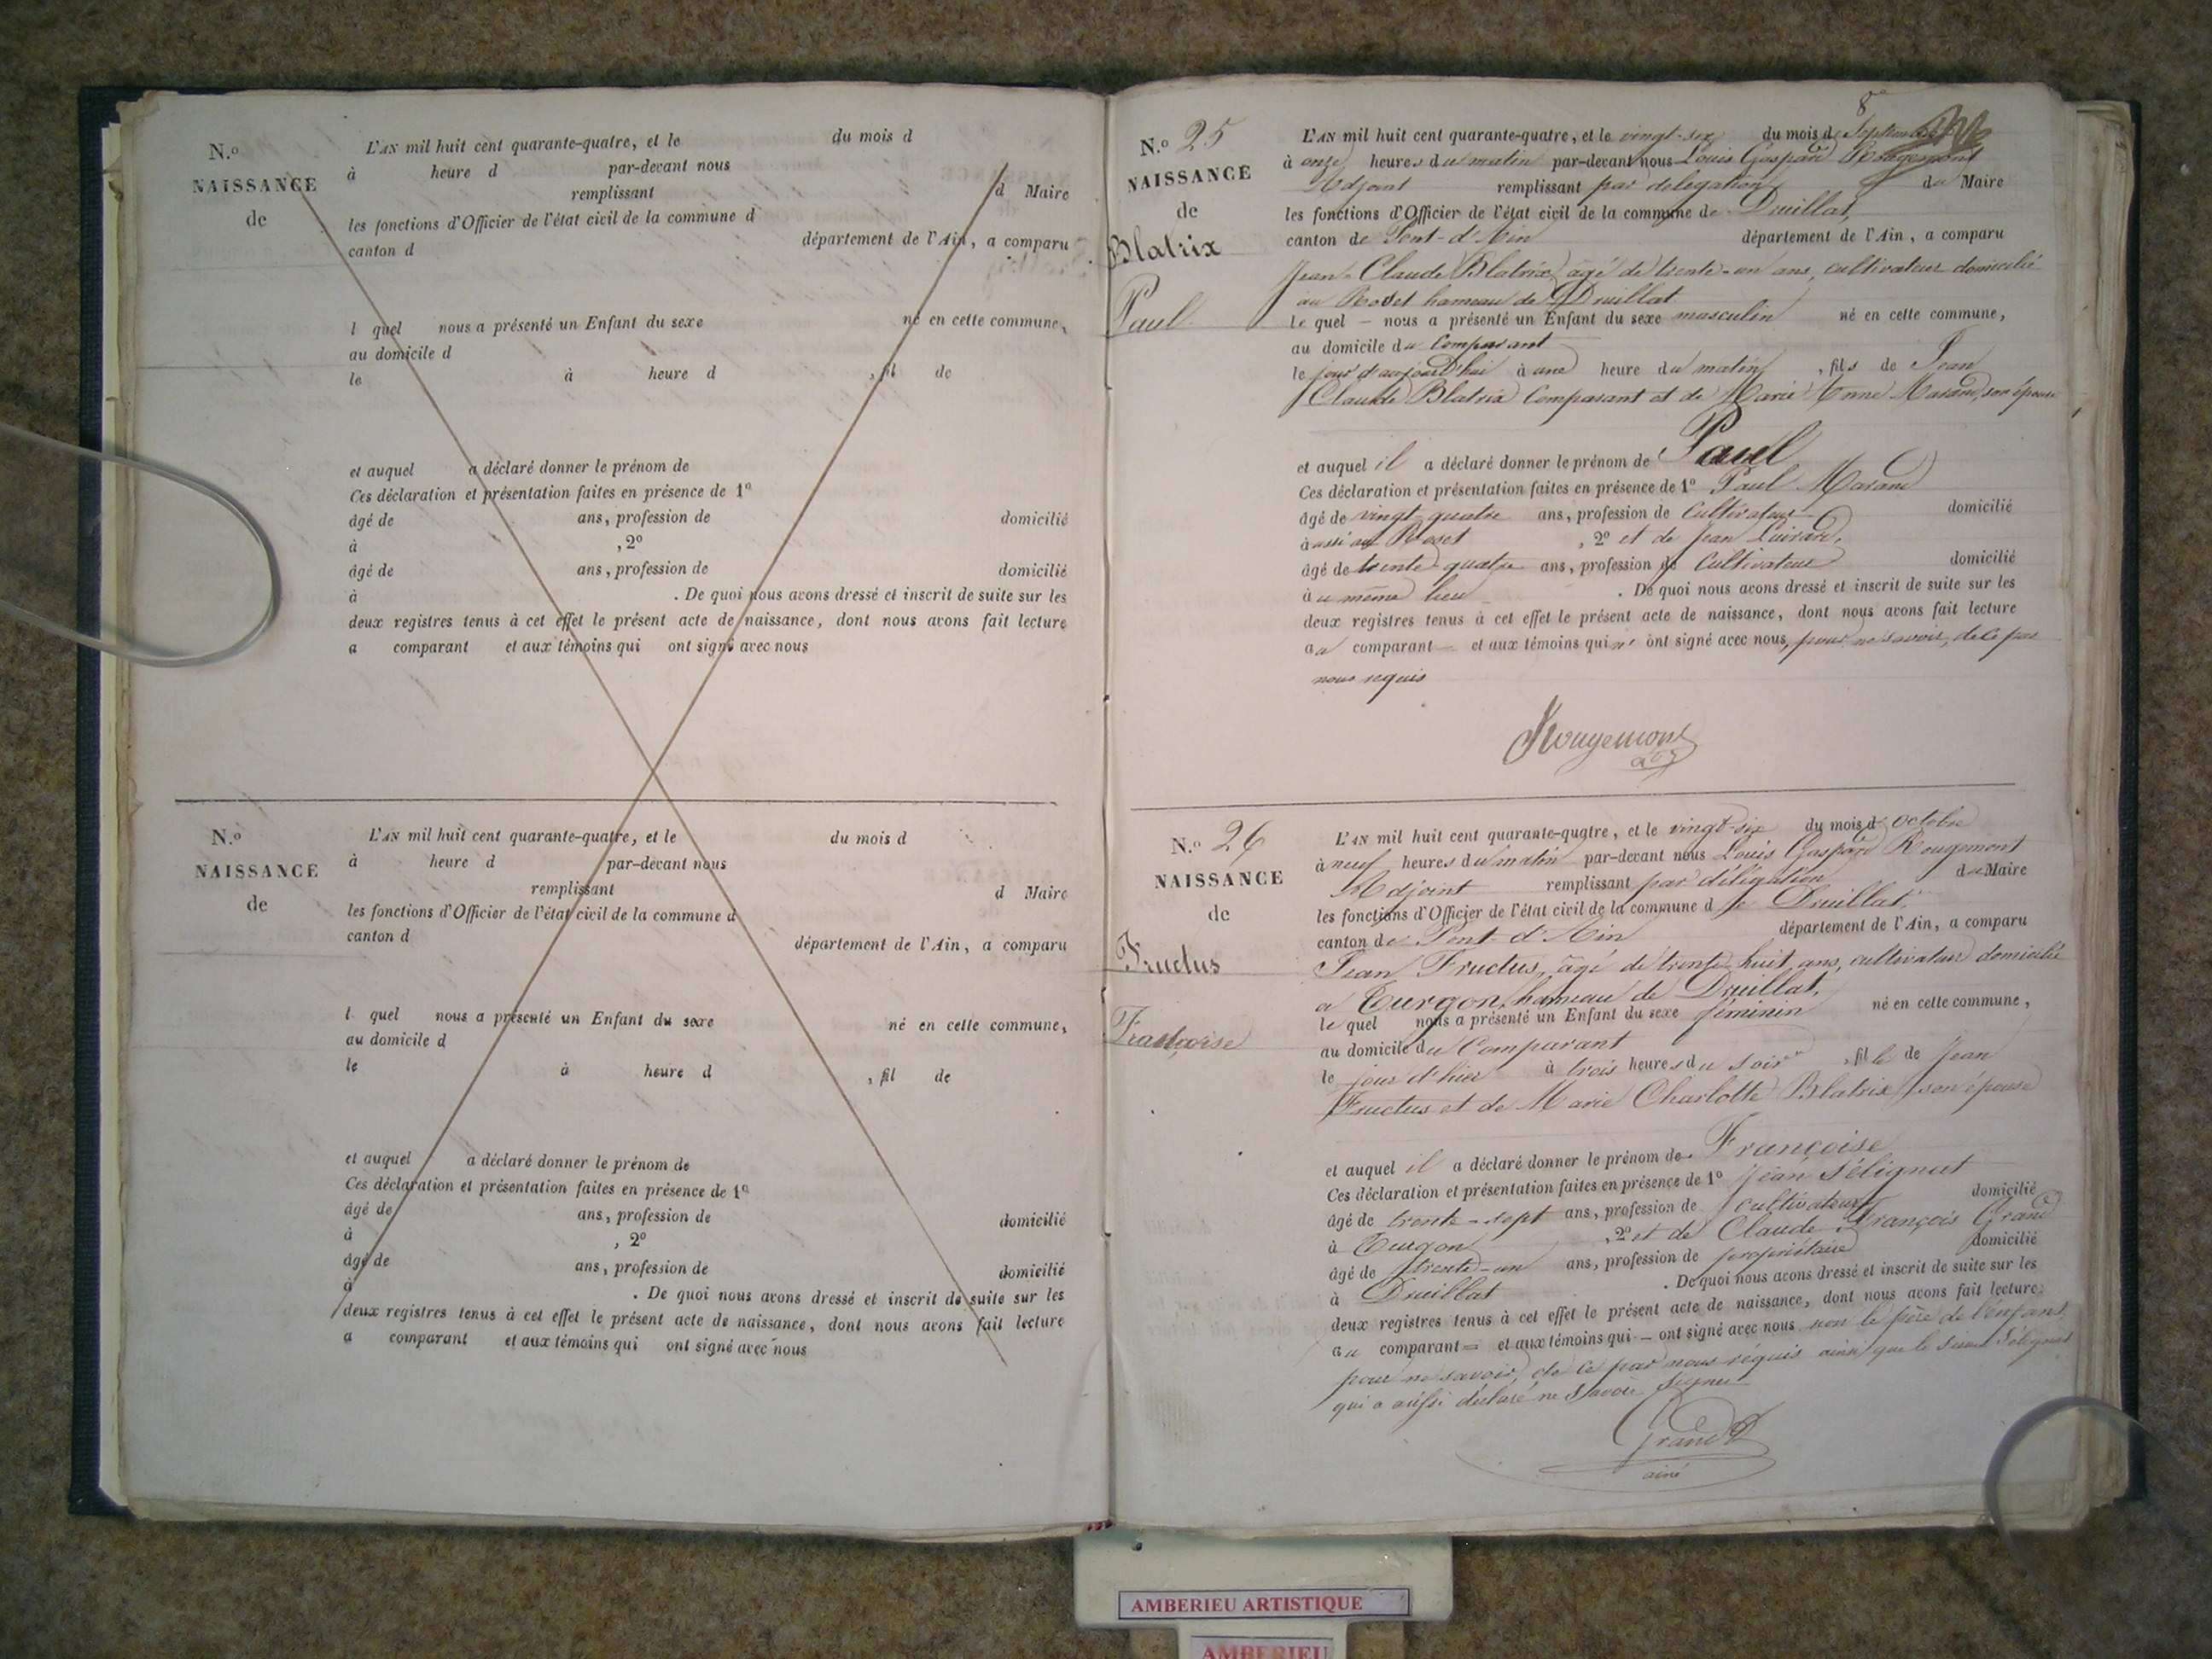 N.o
NAISSANCE
de
L'AN mil huit cent quarante-quatre, et le du mois d
à heure d par-devant nous
remplissant d Maire
les fonctions d'Officier de l'état civil de la commune d
canton d département de l'Ain, a comparu
l quel nous a présenté un Enfant du sexe né en cette commune,
au domicile d
le à heure d , fil de
et auquel a déclaré donner le prénom de
Ces déclaration et présentation faites en présence de 1o
âgé de ans, profession de domicilié
à , 2o
âgé de ans, profession de domicilié
à . De quoi nous avons dressé et inscrit de suite sur les
deux registres tenus à cet effet le présent acte de naissance, dont nous avons fait lecture
a comparant et aux témoins qui ont signé avec nous
N.o
NAISSANCE
de
L'AN mil huit cent quarante-quatre, et le du mois d
à heure d par-devant nous
remplissant d Maire
les fonctions d'Officier de l'état civil de la commune d
canton d département de l'Ain, a comparu
l quel nous a présenté un Enfant du sexe né en cette commune,
au domicile d
le à heure d , fil de
et auquel a déclaré donner le prénom de
Ces déclaration et présentation faites en présence de 1o
âgé de ans, profession de domicilié
à , 2o
âgé de ans, profession de domicilié
à . De quoi nous avons dressé et inscrit de suite sur les
deux registres tenus à cet effet le présent acte de naissance, dont nous avons fait lecture
a comparant et aux témoins qui ont signé avec nous
8
N.o 25
NAISSANCE
de
Blatrix
Paul
L'AN mil huit cent quarante-quatre, et le vingt-six du mois de Septembre
à onze heures du matin par-devant nous Louis Gaspard Rougemont
Adjoint remplissant par délégation du Maire
les fonctions d'Officier de l'état civil de la commune de Druillat,
canton de Pont-d'Ain département de l'Ain, a comparu
Jean-Claude Blatrix, âgé de trente-un ans, cultivateur domicilié
au Roset hameau de Druillat
Le quel – nous a présenté un Enfant du sexe masculin né en cette commune,
au domicile du Comparant
le jour d'aujourd'hui à une heure du matin , fils de Jean
Claude Blatrix Comparant et de Marie Anne Marand, son épouse
et auquel il a déclaré donner le prénom de Paul
Ces déclaration et présentation faites en présence de 1o Paul Marand
âgé de vingt-quatre ans, profession de Cultivateur domicilié
à aussi au Roset , 2o et de Jean
âgé de trente-quatre ans, profession de Cultivateur domicilié
à u même lieu . De quoi nous avons dressé et inscrit de suite sur les
deux registres tenus à cet effet le présent acte de naissance, dont nous avons fait lecture
au comparant – et aux témoins qui n' ont signé avec nous, pour ne savoir, de ce par
nous requis
Rougemont
adj
N.o 26
NAISSANCE
de
Fructus
Françoise
L'AN mil huit cent quarante-quatre, et le vingt-six du mois d'octobre
à neuf heures du matin par-devant nous Louis Gaspard Rougemont
Adjoint remplissant par délégation du Maire
les fonctions d'Officier de l'état civil de la commune de Druillat,
canton de Pont-d'Ain département de l'Ain, a comparu
Jean Fructus, âgé de trente-huit ans, cultivateur domicilié
à Turgon, hameau de Druillat,
le quel nous a présenté un Enfant du sexe féminin né en cette commune,
au domicile du Comparant
le jour d'hier à trois heures du soir , fille de Jean
Fructus et de Marie Charlotte Blatrix, son épouse
et auquel il a déclaré donner le prénom de Françoise
Ces déclaration et présentation faites en présence de 1o Jean Sélignat
âgé de trente-sept ans, profession de cultivateur domicilié
à Turgon , 2o et de Claude-François Grand
âgé de trente-un ans, profession de propriétaire domicilié
à Druillat . De quoi nous avons dressé et inscrit de suite sur les
deux registres tenus à cet effet le présent acte de naissance, dont nous avons fait lecture
au comparant = et aux témoins qui – ont signé avec nous non le père de l'enfant
pour ne savoir, de ce par nous requis ainsi que le Sieur Sélignat
qui a aussi déclaré ne savoir signer
Grand
ainé
AMBERIEU ARTISTIQUE
AMBERIEU